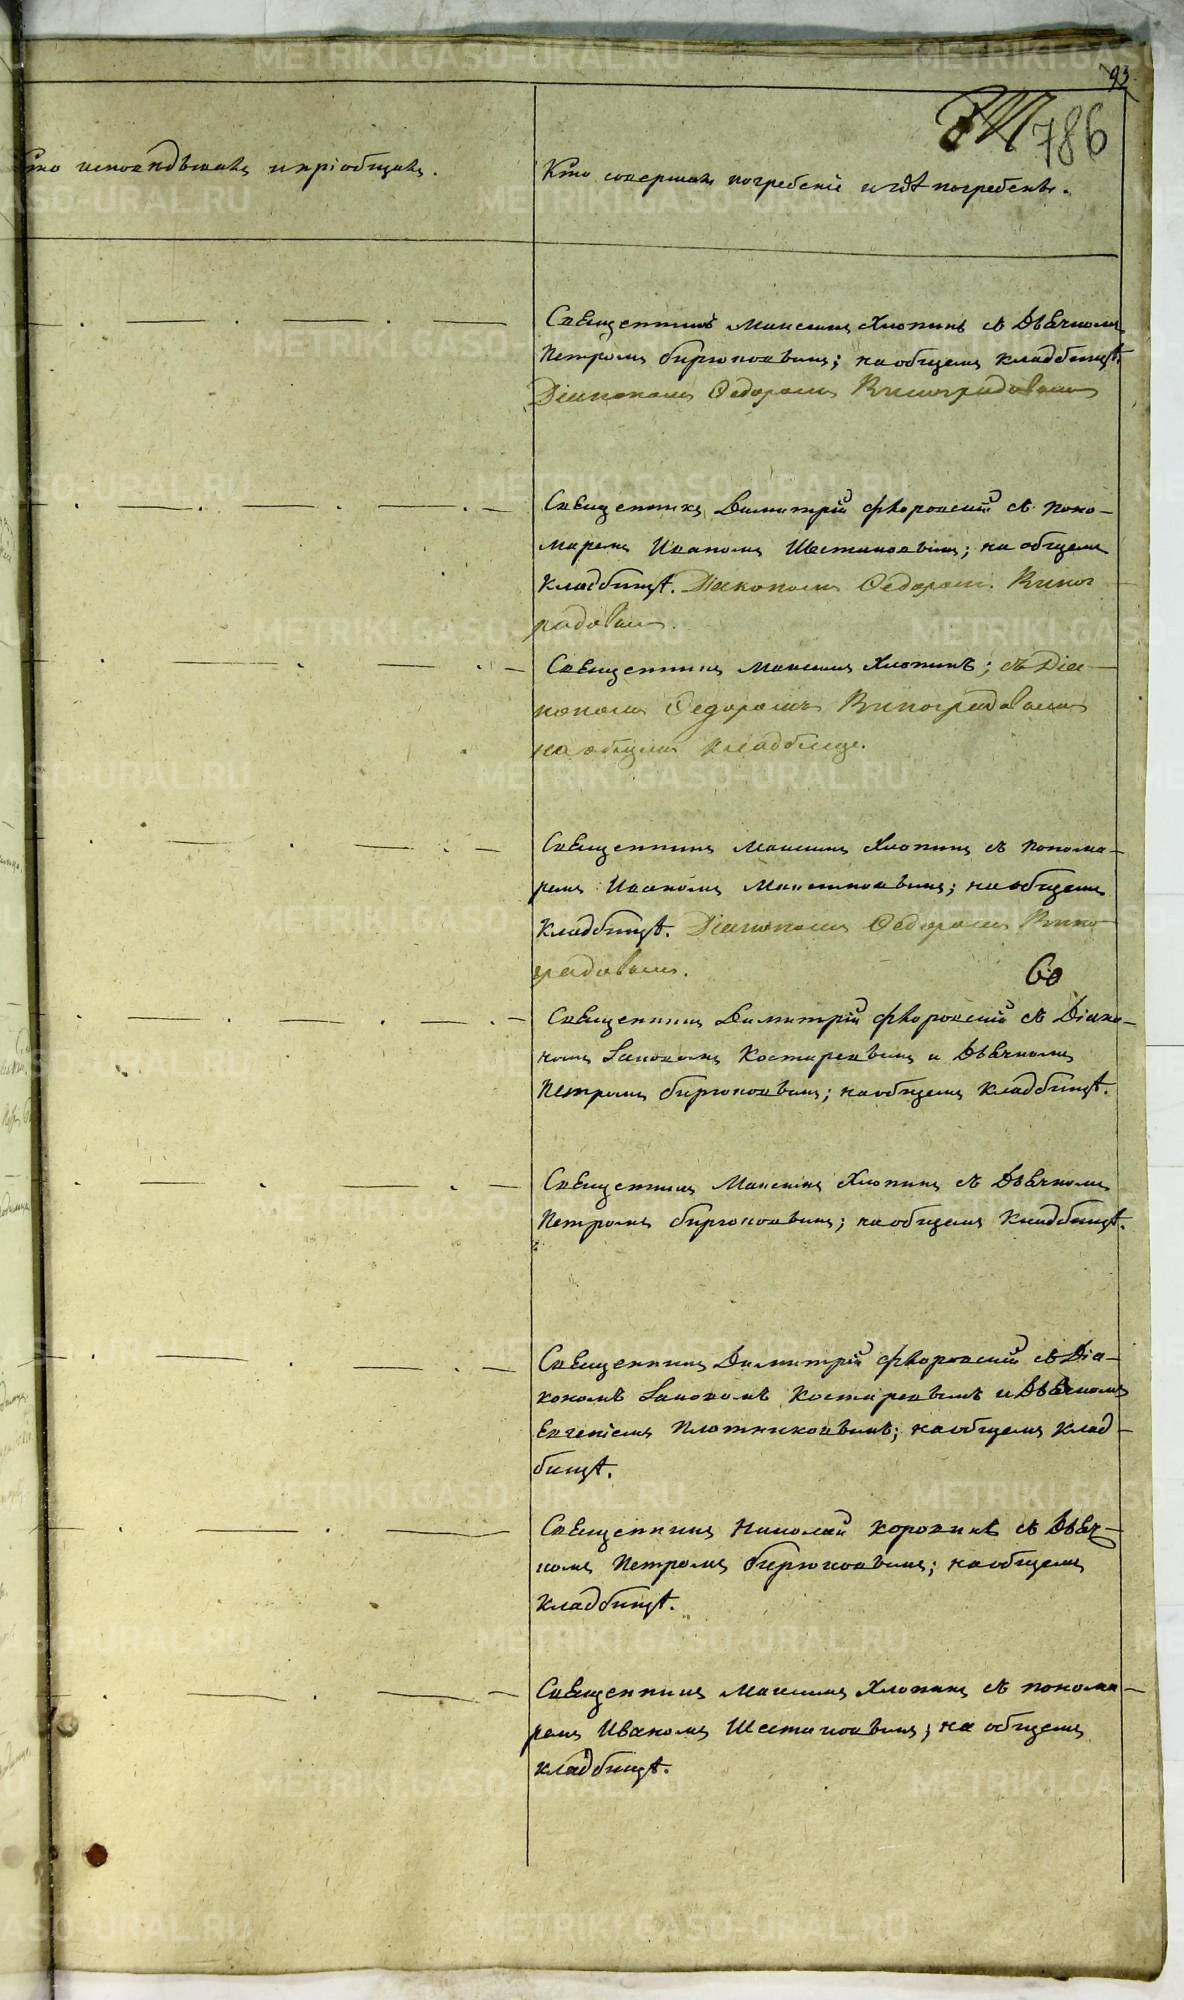 93.
786
Кто исповѣдывалъ и пріобщалъ.
Кто совершалъ погребеніе и гдѣ погребены.
Священникъ Максимъ Хлопинъ съ Дьячкомъ
Петромъ Бирюковымъ; на общемъ кладбищѣ.
Діакономъ Федоромъ Виноградовымъ
Священникъ Димитрій Флоровскій съ Поно-
маремъ Иваномъ Шестаковымъ; на общемъ
кладбищѣ. Діакономъ Федоромъ Виног
радовым.
Священникъ Максимъ Хлопинъ; съ Діа-
кономъ Федоромъ Виноградовымъ
на общемъ кладбище.
Священникъ Максимъ Хлопинъ съ понома-
ремъ Иваномъ; на общемъ
кладбищѣ. Діакономъ Федоромъ Вино
градовым.
60
Священникъ Димитрій Флоровскій съ Діако-
номъ Костаревымъ и Дьячкомъ
Петромъ Бирюковымъ; на общемъ кладбищѣ.
Священникъ Максимъ Хлопинъ съ Дьячкомъ
Петромъ Бирюковымъ; на общемъ кладбищѣ.
Священникъ Димитрій Флоровскій съ Діа-
кономъ Костаревымъ и Дьячкомъ
Евгеніемъ Плотниковымъ; на общемъ клад-
бищѣ.
Священникъ Николай Коровинъ съ Дьяч-
комъ Петромъ Бирюковымъ; на общемъ
кладбищѣ.
Священникъ Максимъ Хлопинъ съ понома-
ремъ Иваномъ Шестаковымъ; на общемъ
кладбищѣ.
METRIKI.GASO-URAL.RU